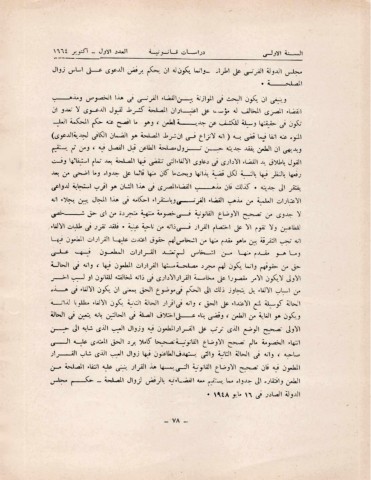 السنة الاولى دراسات قانونية العدد الاول - اكتوبر ١٩٦٤
مجلس الدولة الفرنسي على اطراد . وانما يكون له ان يحكم برفض الدعوى على اساس زوال
المصلحة
وينبغى ان يكون البحث في الموازنة بين القضاء الفرنسي فى هذا الخصوص ومذهب
القضاء المصرى المخالف له على اعتبار ان المصلحة كشرط لقبول الدعوى لا تعدو ان
تكون فى حقيقتها وسيلة للكشف عن جدية الطعن ، وهو ما افصح عنه حكم المحكمة العليا
المنوه عنه انفا فيما قضى به ( انه لا نزاع فى ان شرط المصلحة هو الضمان الكافى لجدية الدعوى )
وبديهى ان الطعن يفقد جديته حين تزول مصلحة الطاعن قبل الفصل فيه ، ومن ثم يستقيم
القول باطلاق يد القضاء الادارى فى دعاوى الالغاء التى تنقضى فيها المصلحة بعد تمام استيفائها وقت
رفعها والنظر فيها بالنسبة لكل قضية بذاتها وبحث ما كان منها قائما على جدواه وما اضحى من بعد
يفتقر الى جديته ، كذلك فان مذهب القضاء المصرى فى هذا الشأن هو اقرب استجابة لدواعى
الاعتبارات العلمية من مذهب القضاء الفرنسي وباستقراء احكامه فى هذا المجال يبين بجلاء انه
لا جدوى من تصحيح الاوضاع القانونية فى خصومة منتهية متجردة من اى حق شخصى
ولا تقوم الا على اختصام القرار فى ذاته من ناحية عينية ، فقد تقرر فى طلبات الالغاء
انه تجب التفرقة بين ما هو مقدم منها من اشخاص لهم حقوق اعتدت عليها القرارات المطعون فيها
وما هو مقدم منها من اشخاص لم تعتد القرارات المطعون فيها على
حق من حقوقهم وانما يكون لهم مجرد مصلحة مستها القرارات المطعون فيها ، وانه فى الحالة
الاولى لا يكون الامر مقصورا على مخاصمة القرار الادارى فى ذاته لمخالفته للقانون او لسبب اخر
من اسباب الالغاء بل يتجاوز ذلك الى الحكم فى موضوع الحق بمعنى ان يكون الالغاء فى هذه
الحالة كوسيلة لمنع الاعتداء على الحق ، وانه فى الحالة الثانية يكون الالغاء مطلوبا لذاته
ويكون هو الغاية من الطعن ، وقضى بناء على اختلاف الصفة فى الحالتين بانه يتعين فى الحالة
الاولى تصحيح الوضع الذى ترتب على القرار المطعون فيه وزوال العيب الذى شابه الى حين
انتهاء الخصومة مالم تصحح الاوضاع القانونية تصحيحا كاملا يرد الحق المعتدى عليه الى
صاحبه ، وانه فى الحالة الثانية والتى يستهدف الطاعنون فيها زوال العيب الذى شاب القرار
المطعون فيه فان تصحيح الاوضاع القانونية التى يمسها هذا القرار ينبنى عليه انتفاء المصلحة من
الطعن وافتقاره الى جدواه مما يستقيم معه القضاء فيه بالرفض لزوال المصلحة - حكم مجلس
الدولة الصادر فى ١٦ مايو ١٩٤٨ .
- ٧٨ -